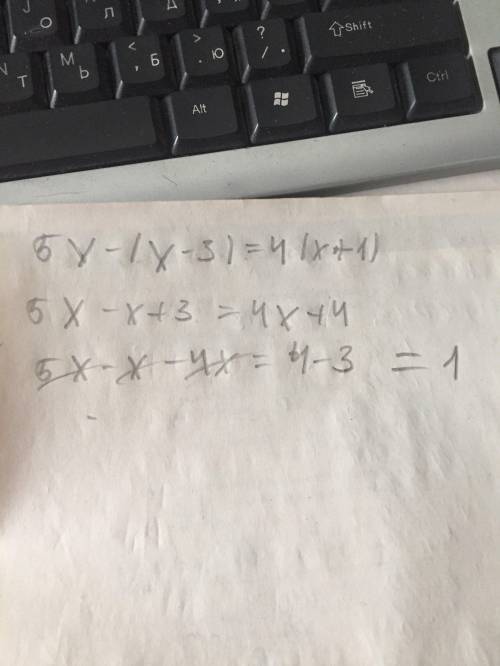 О Л Д
Т М Ь < , Б > . Ю ? / . Shift
Alt Ctrl
5x-(x-3)=4(x+1)
5x-x+3=4x+4
5x-x-4x=4-3 =1
-